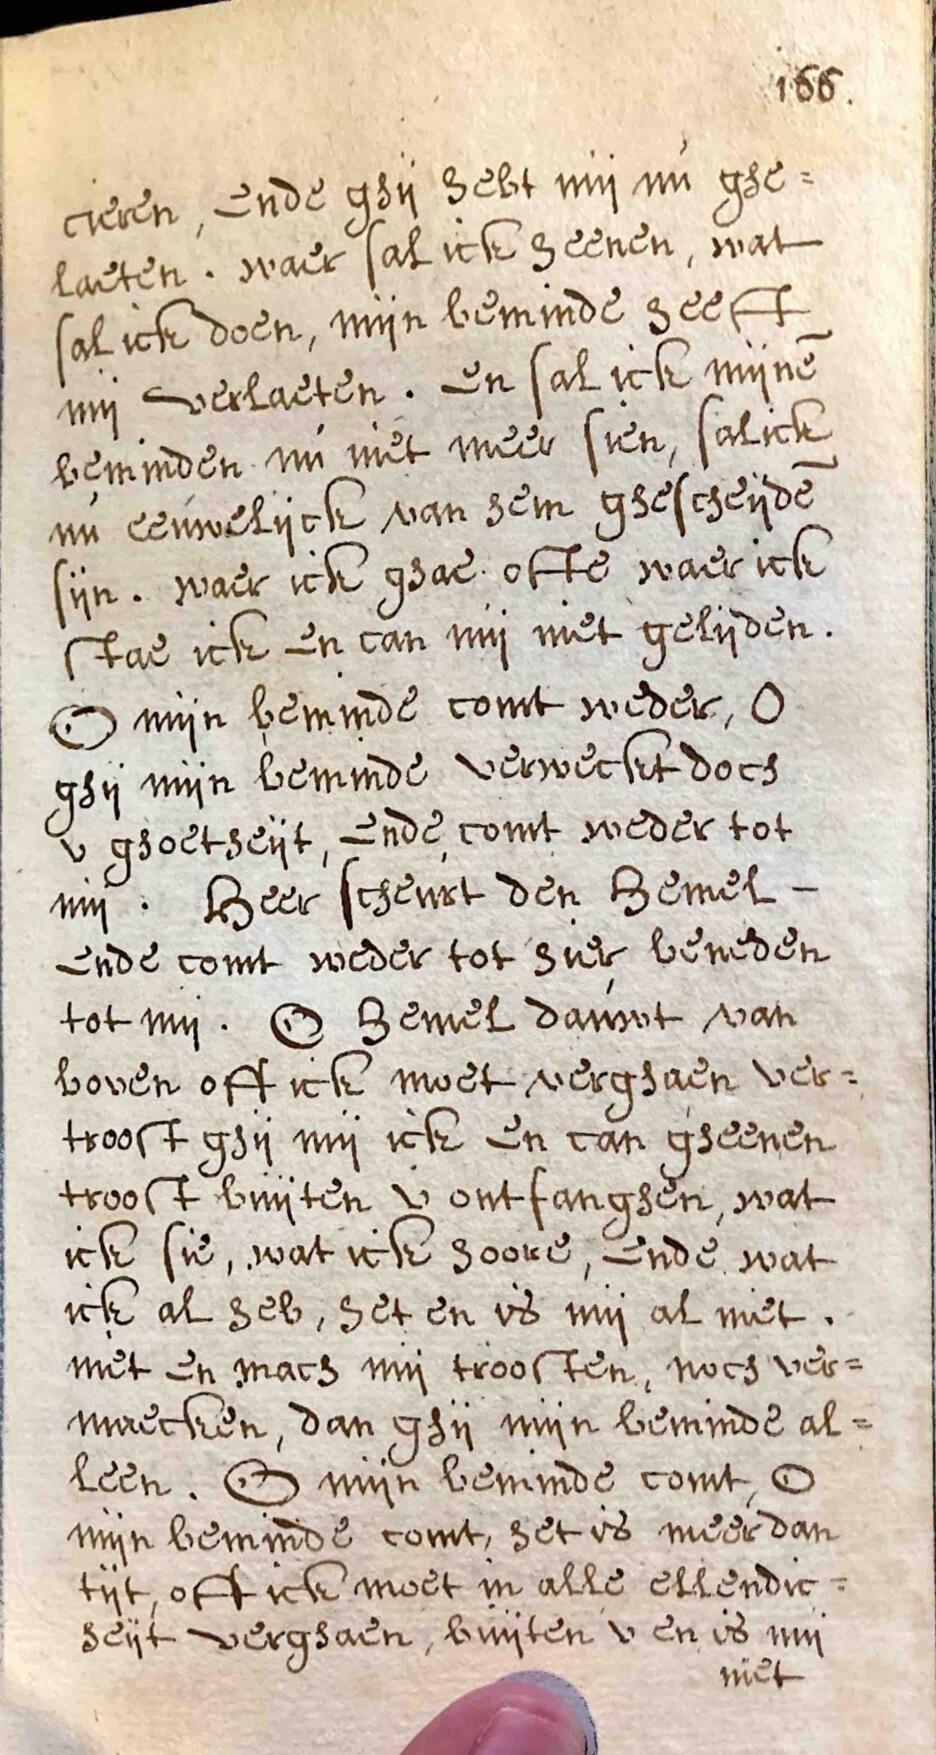 166.
cieren, Ende ghij hebt mij nú ghe=
laeten. waer sal ick heenen, wat
sal ick doen, mijn beminde heeft
mij verlaeten. En sal ick mijnē
beminden nú niet meer sien, sal ick
nú eeúwelijck van hem ghescheijdē
sijn. waer ick ghae ofte waer ick
stae ick en can mij niet gelijden.
O mijn beminde comt weder, O
ghij mijn beminde verweckt doch
v ghoetheijt, Ende comt weder tot
mij. Heer scheurt den Hemel –
Ende comt weder tot hier beneden
tot mij. O Hemel dauwt van
boven off ick moet verghaen ver=
troost ghij mij ick En can gheenen
troost buijten v ontfanghen, wat
ick sie, wat ick hoore, Ende wat
ick al heb, het en is mij al niet.
niet En mach mij troosten, noch ver=
maecken, dan ghij mijn beminde al=
leen. O mijn beminde comt, O
mijn beminde comt, het is meer dan
tijt, off ick moet in alle ellendic=
heijt verghaen, buijten v en is mij
niet